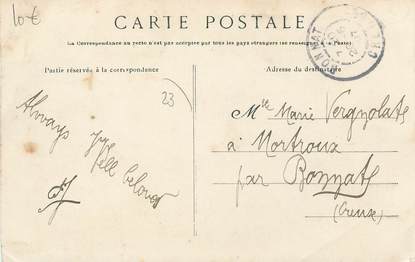 10€
CARTE POSTALE
La Correspondance au verso n'est pas acceptée par tous les pays étrangers (se renseigner à la Poste)
Partie réservée à la correspondance
Adresse du destinataire
23
Always
Mlle Marie Vergnolats
à Mortroux
par Bonnat
(Creuse)
BONNAT